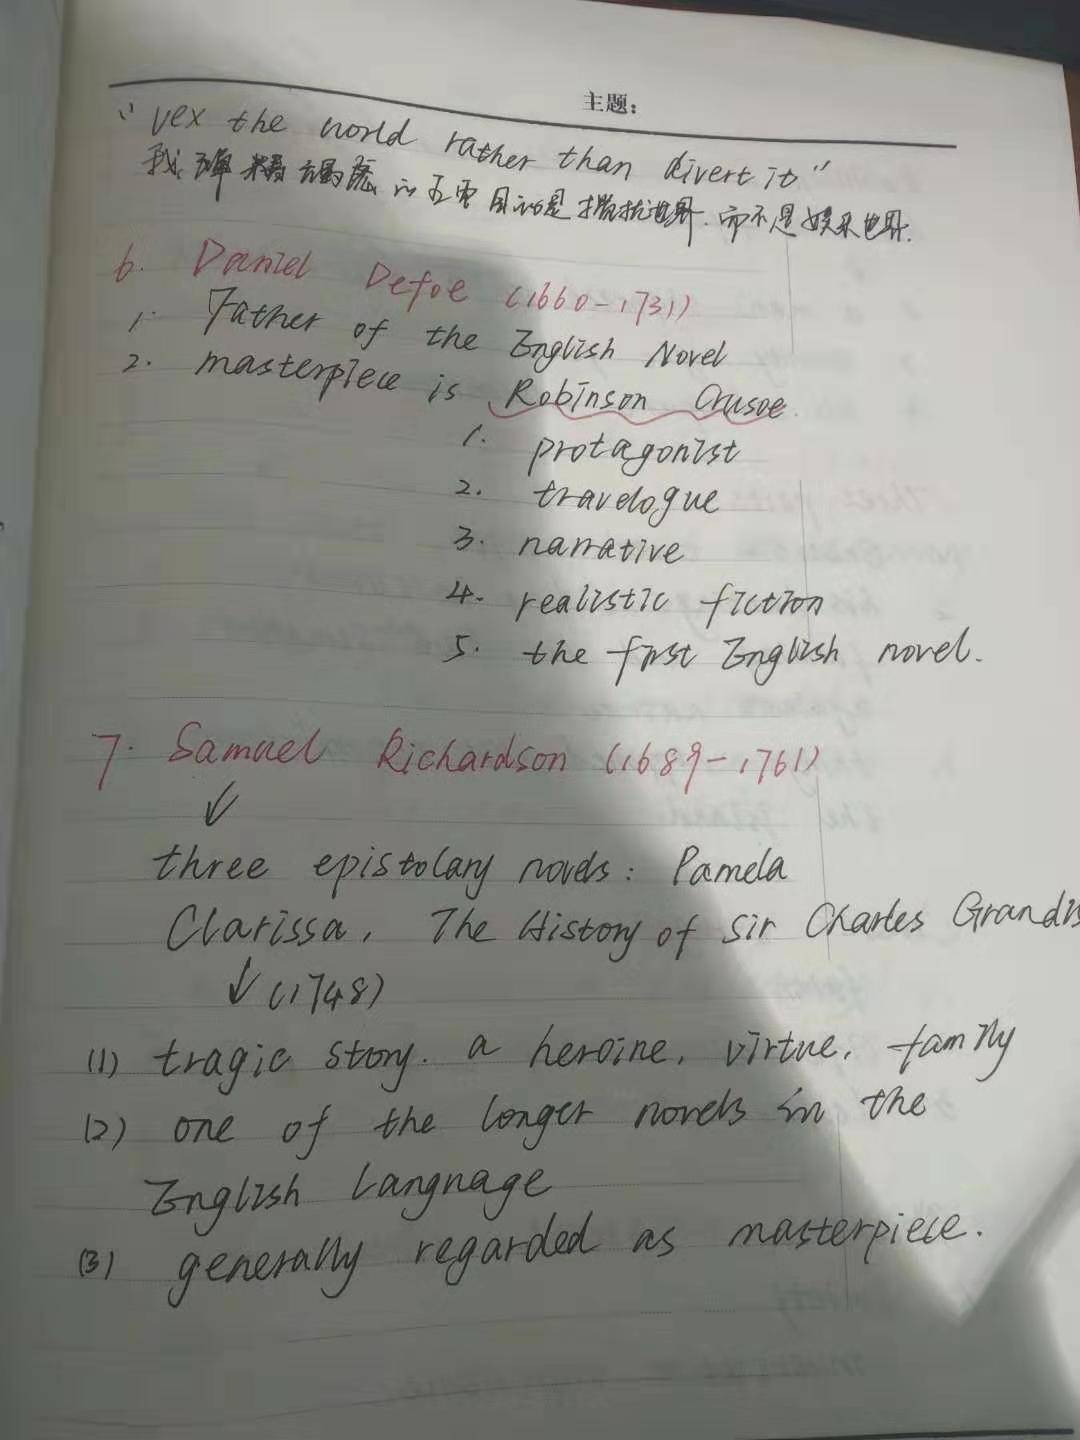 主题：
"vex the world rather than divert it"
我殚精竭虑的主要目的是搅扰世界.而不是娱乐世界.
6. Daniel Defoe (1660-1731)
1. Father of the English Novel
2. masterpiece is Robinson Crusoe.
1. protagonist
2. travelogue
3. narrative
4. realistic fiction
5. the first English novel.
7. Samuel Richardson (1689-1761)
↓
three epistolary novels: Pamela
Clarissa, The History of Sir Charles Grandis
↓ (1748)
(1) tragic story. a heroine, virtue, family
(2) one of the longer novels in the
English Language
(3) generally regarded as masterpiece.